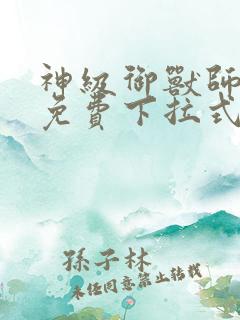 神級御獸師
免費下拉式
孫子林
未經同意禁止轉載